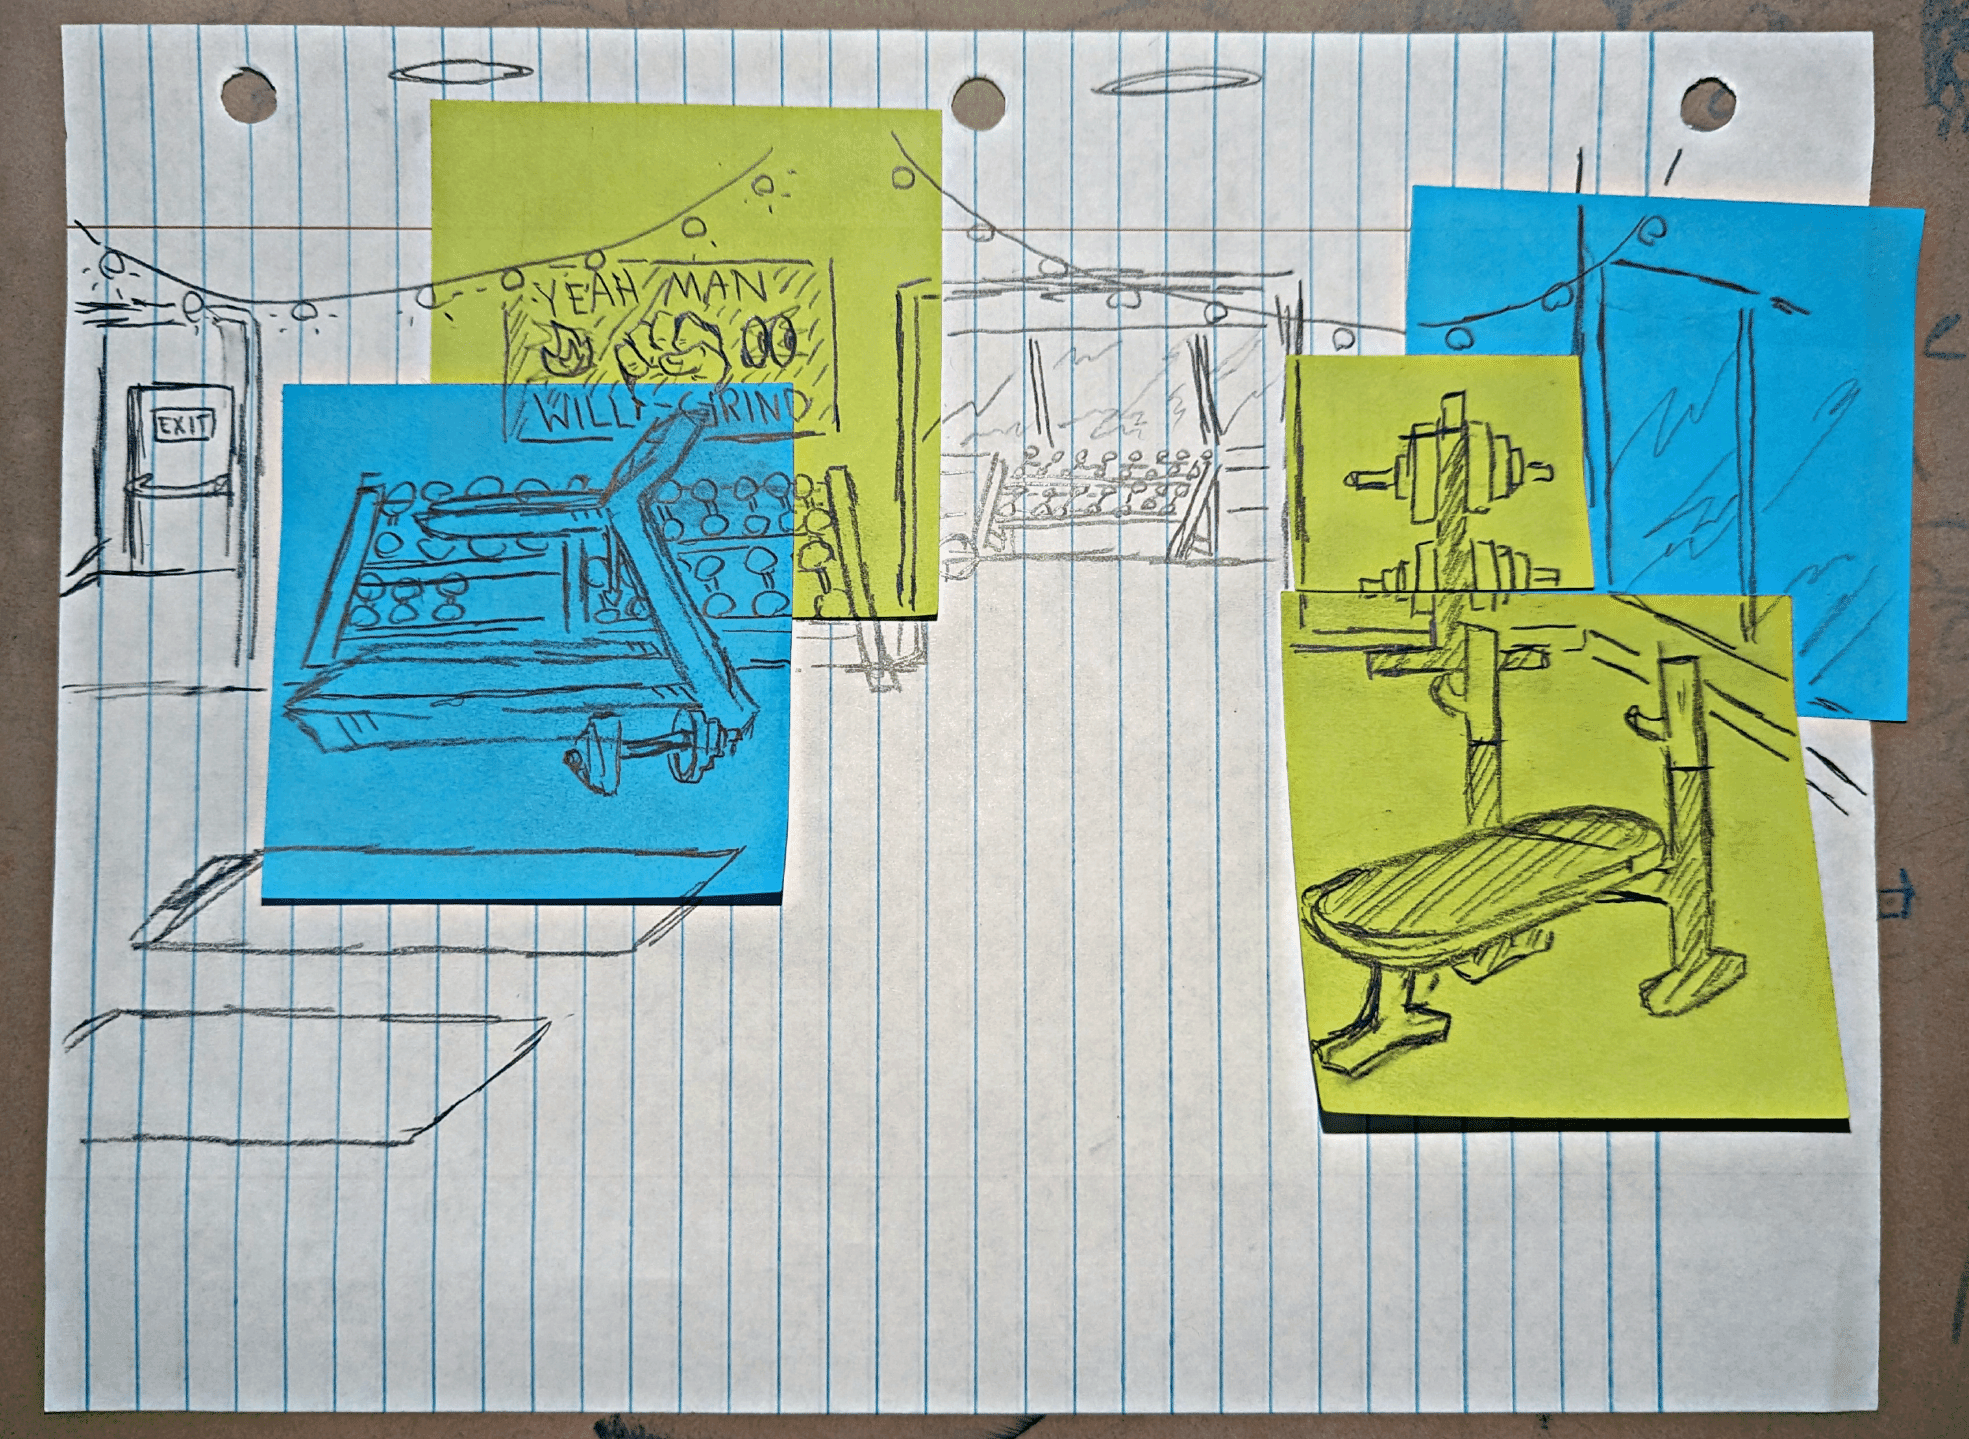 YEAH MAN
WILL-GRIND
EXIT